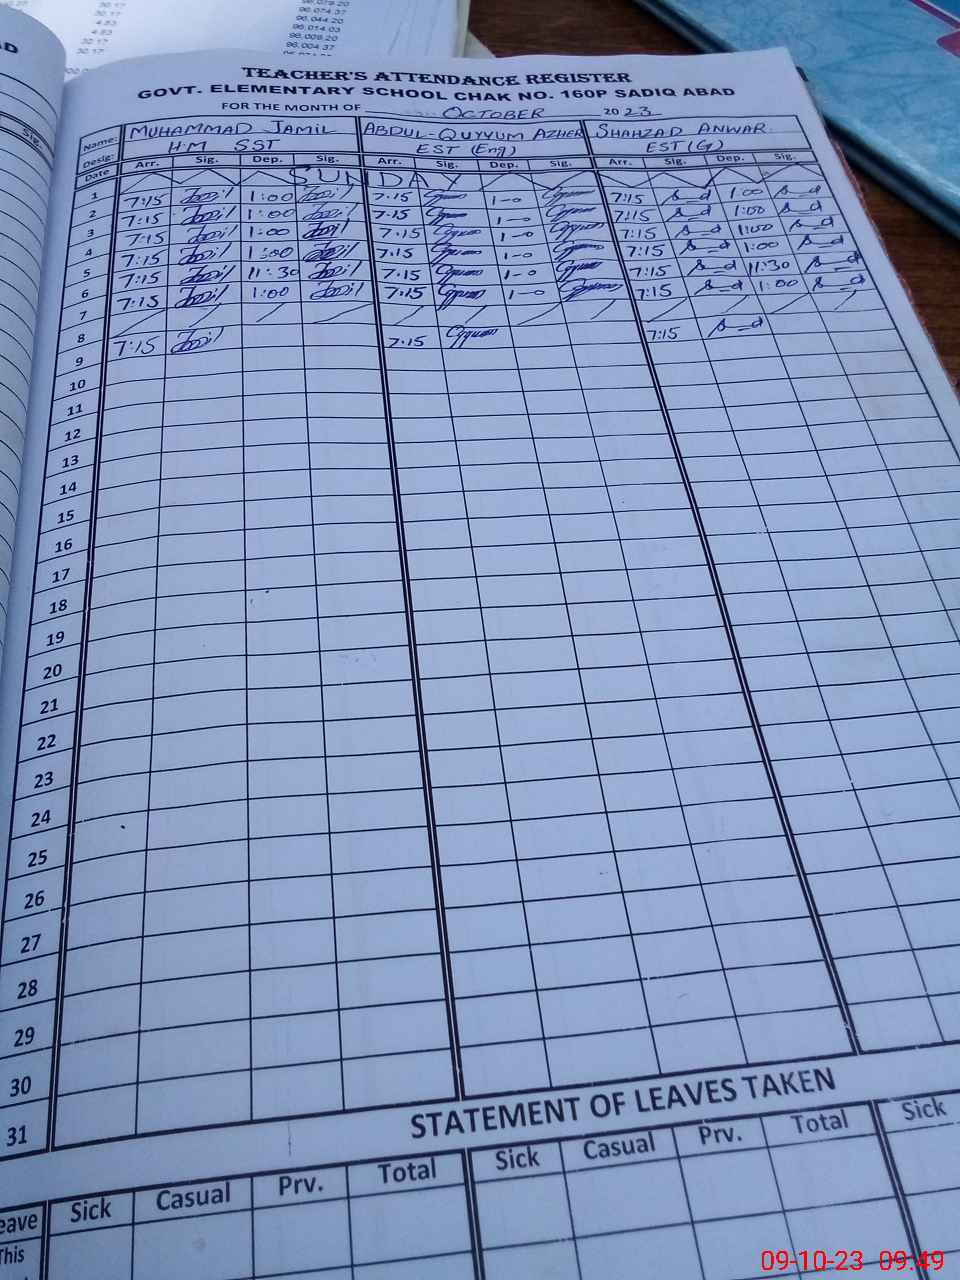 30.17
4.83
4.83
30.17
30.17
96,079.20
96,074.37
96,044.20
96,014.03
96,009.20
96,004.37
AD
Sig.
TEACHER'S ATTENDANCE REGISTER
GOVT. ELEMENTARY SCHOOL CHAK NO. 160P SADIQ ABAD
FOR THE MONTH OF OCTOBER 2023
Name: MUHAMMAD JAMIL ABDUL-QUYYUM AZHER SHAHZAD ANWAR.
Desig: H.M SST EST (Eng) EST(G)
Date Arr. Sig. Dep. Sig. Arr. Sig. Dep. Sig. Arr. Sig. Dep. Sig.
1 SUNDAY
2 7:15 1:00 7:15 1-0 7:15 1:00
3 7:15 1:00 7:15 1-0 7:15 1:00
4 7:15 1:00 7:15 1-0 7:15 1:00
5 7:15 1:00 7:15 1-0 7:15 1:00
6 7:15 11:30 7:15 1-0 7:15 11:30
7 7:15 1:00 7:15 1-0 7:15 1:00
8
9 7:15 7:15 7:15
10
11
12
13
14
15
16
17
18
19
20
21
22
23
24
25
26
27
28
29
30
31
STATEMENT OF LEAVES TAKEN
eave Sick Casual Prv. Total Sick Casual Prv. Total Sick
This
09-10-23 09:49